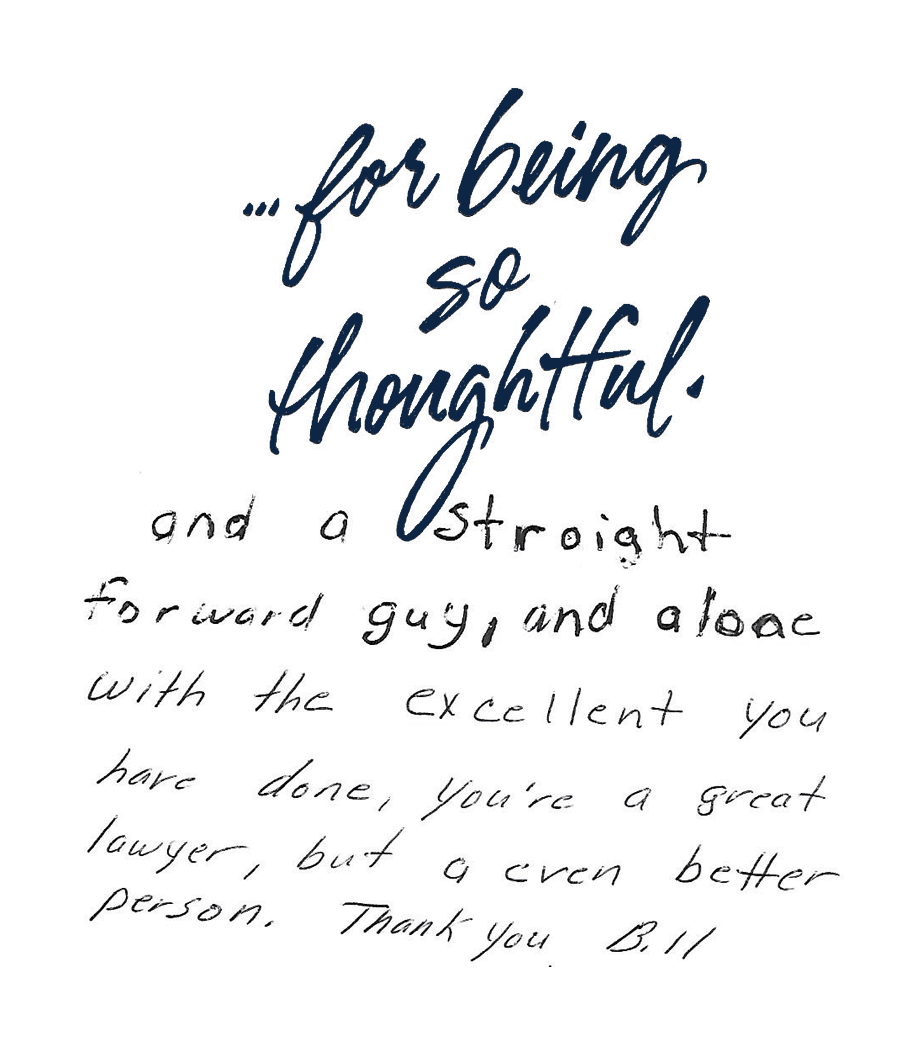 ...for being
so
thoughtful.
and a straight
forward guy, and alone
with the excellent you
have done, you're a great
lawyer, but a even better
person. Thank you Bill